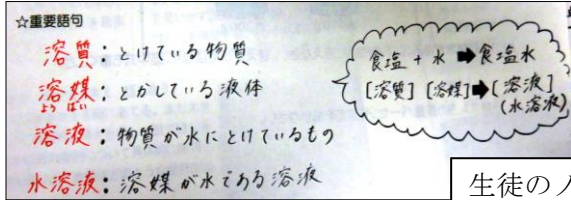 ☆重要語句
溶質：とけている物質
溶媒：とかしている液体
ようばい
溶液：物質が水にとけているもの
水溶液：溶媒が水である溶液
食塩 + 水 ➡ 食塩水
[溶質] [溶媒] ➡ [溶液]
(水溶液)
生徒のノ